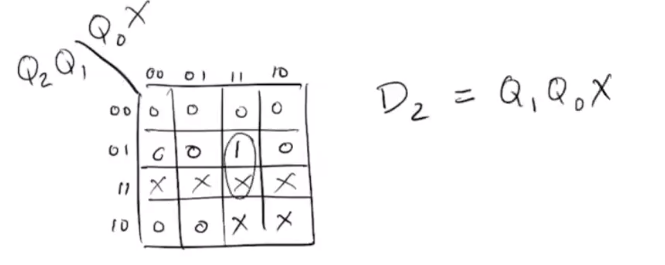 Q₀X
Q₂Q₁
00 01 11 10
00 0 0 0 0
01 0 0 1 0
11 X X X X
10 0 0 X X
D₂ = Q₁Q₀X